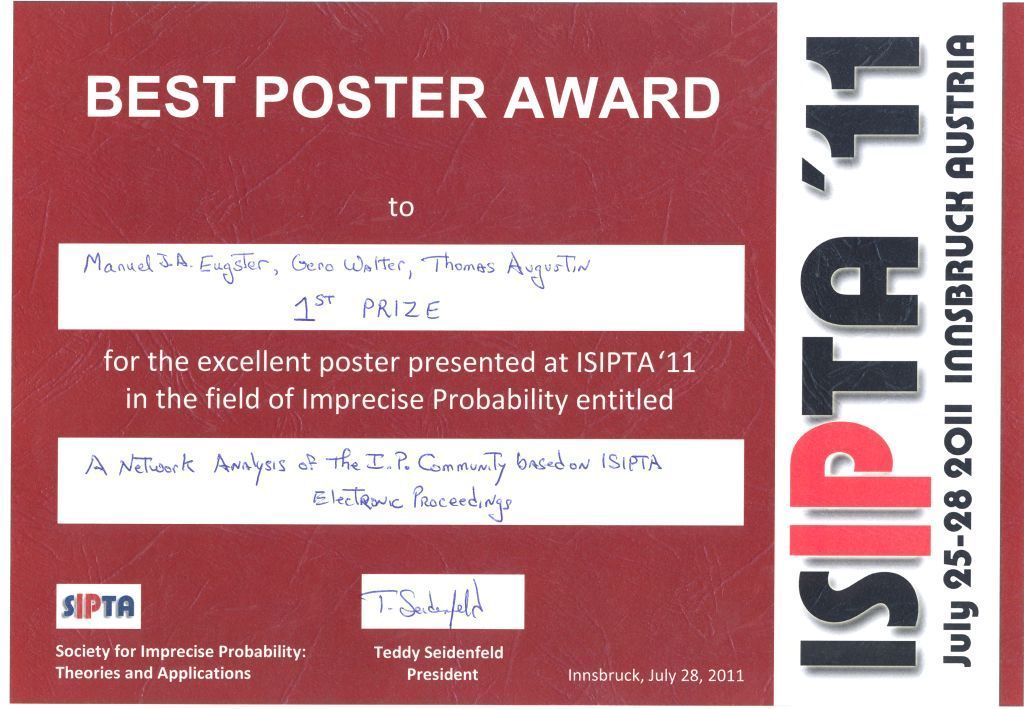 BEST POSTER AWARD
to
Manuel J.A. Eugster, Gero Walter, Thomas Augustin
1ST PRIZE
for the excellent poster presented at ISIPTA ‘11
in the field of Imprecise Probability entitled
A Network Analysis of the I.P. Community based on ISIPTA
Electronic Proceedings
SIPTA
T. Seidenfeld
Society for Imprecise Probability:
Theories and Applications
Teddy Seidenfeld
President
Innsbruck, July 28, 2011
ISIPTA ’11
July 25-28 2011 INNSBRUCK AUSTRIA